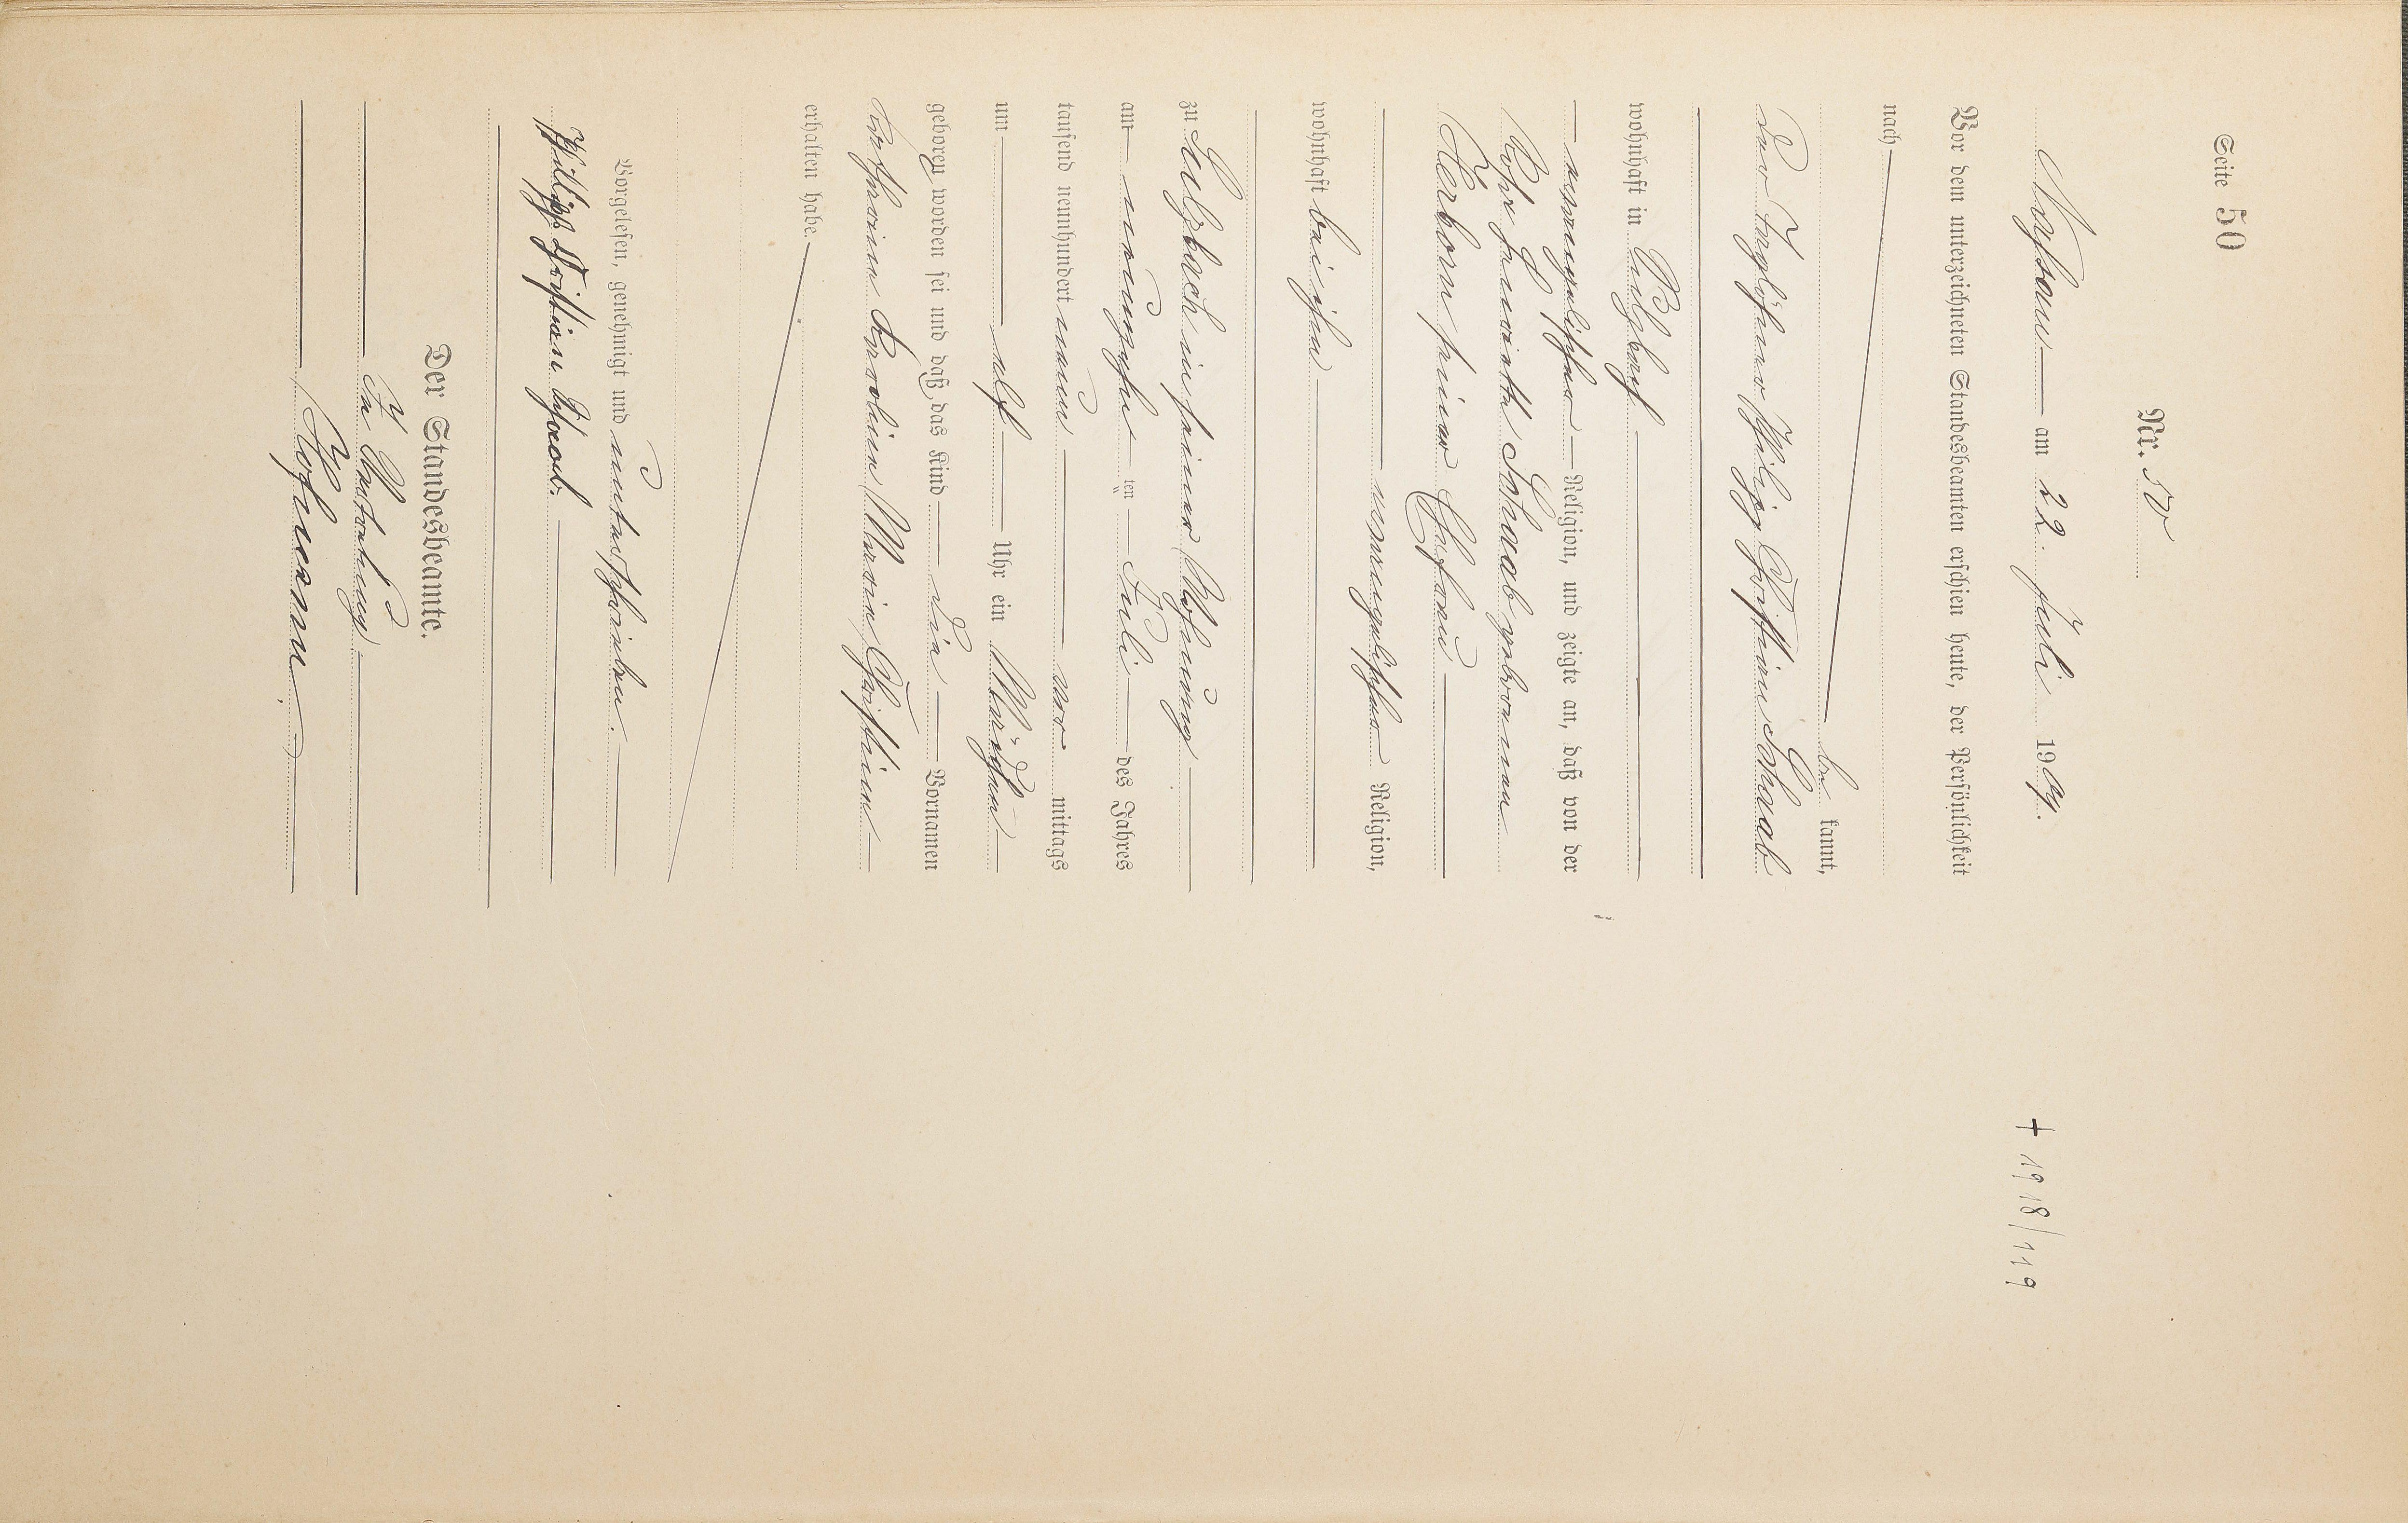 Seite 50
Nr. 50
Nassau am 22. Juli 1909.
+ 1918/119
Vor dem unterzeichneten Standesbeamten erschien heute, der Persönlichkeit
nach
be kannt,
der Taglöhner Philipp Christian Schaab
wohnhaft in Sulzbach
evangelischer Religion, und zeigte an, daß von der
Schaab geborenen
Herborn seiner Ehefrau
evangelischer Religion,
wohnhaft bei ihm
zu Sulzbach in seiner Wohnung
am neunzehn ten Juli des Jahres
tausend neunhundert neun vor mittags
um elf Uhr ein Mädchen
geboren worden sei und daß das Kind die Vornamen
Katharina Karoline Maria Christine
erhalten habe.
Vorgelesen, genehmigt und unterschrieben.
Philipp Christian Schaab.
Der Standesbeamte.
In Vertretung
Hofmann.